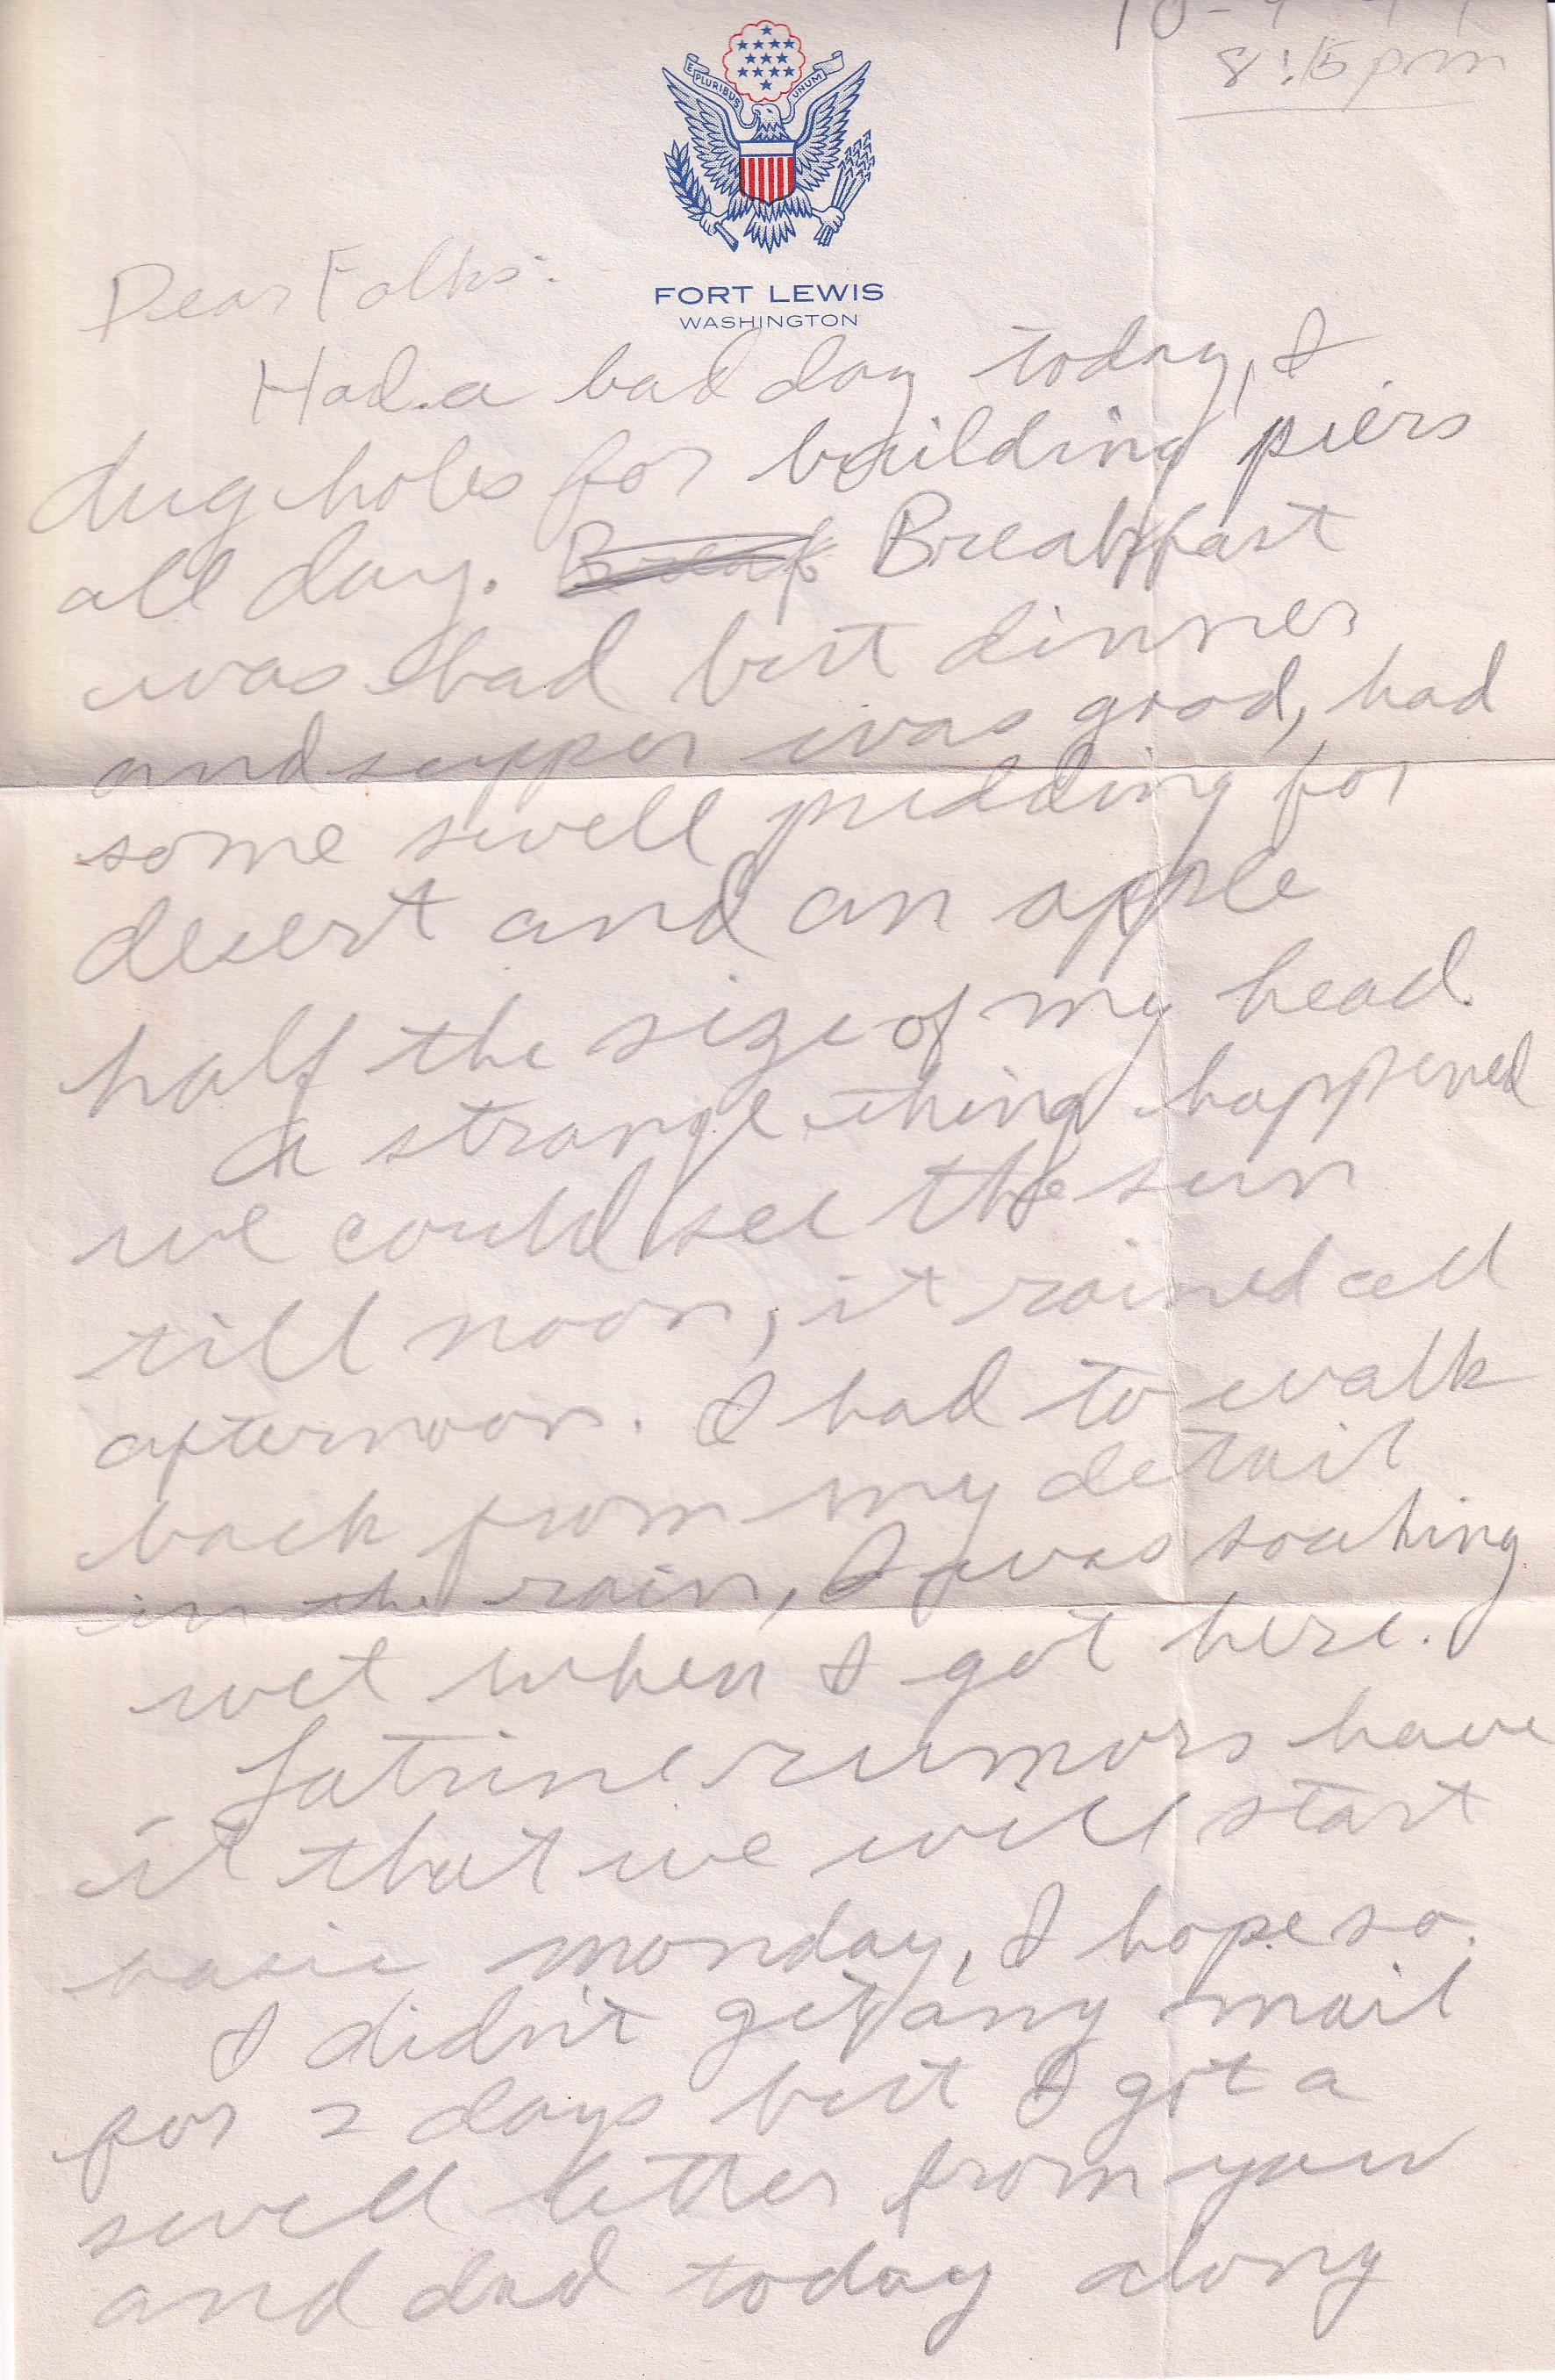 8:15pm
E PLURIBUS UNUM
FORT LEWIS
WASHINGTON
Dear Folks:
Had a bad day today, I
dug holes for building piers
all day. Break Breakfast
was bad but dinner
and supper was good, had
some swell pudding for
desert and an apple
half the size of my head.
A strange thing happened
we could see the sun
till noon, it rained all
afternoon. I had to walk
back from my detail
in the rain, I was soaking
wet when I got here.
Latrine rumors have
it that we will start
basic monday, I hope so.
I didn't get any mail
for 2 days but I got a
swell letter from you
and dad today along